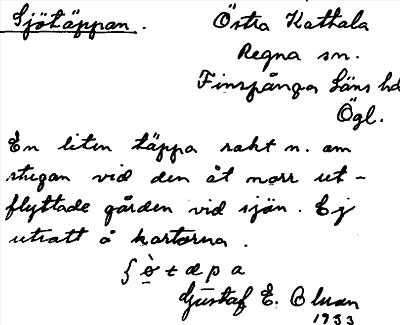 Sjötäppan.
Östra Kathala
Regna sn.
Finspånga läns hd
Ögl.
En liten täppa rakt n. om
stugan vid den åt norr ut-
flyttade gården vid sjön. Ej
utsatt å kartorna.
ʃ ö̀ t æ p a
Gustaf E. Bluan
1933